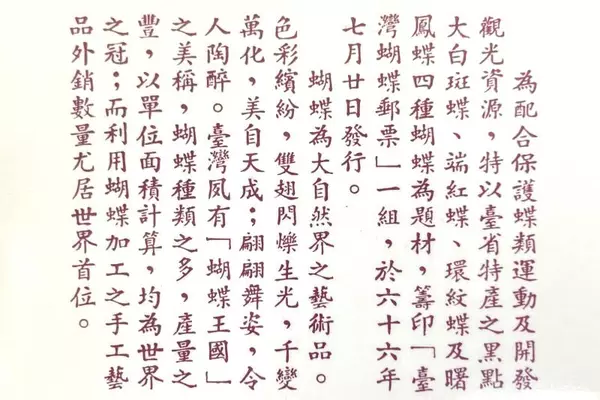 為配合保護蝶類運動及開發
觀光資源，特以臺省特產之黑點
大白斑蝶、端紅蝶、環紋蝶及曙
鳳蝶四種蝴蝶為題材，籌印「臺
灣蝴蝶郵票」一組，於六十六年
七月廿日發行。
蝴蝶為大自然界之藝術品。
色彩繽紛，雙翅閃爍生光，千變
萬化，美自天成；翩翩舞姿，令
人陶醉。臺灣夙有「蝴蝶王國」
之美稱，蝴蝶種類之多，產量之
豐，以單位面積計算，均為世界
之冠；而利用蝴蝶加工之手工藝
品外銷數量尤居世界首位。